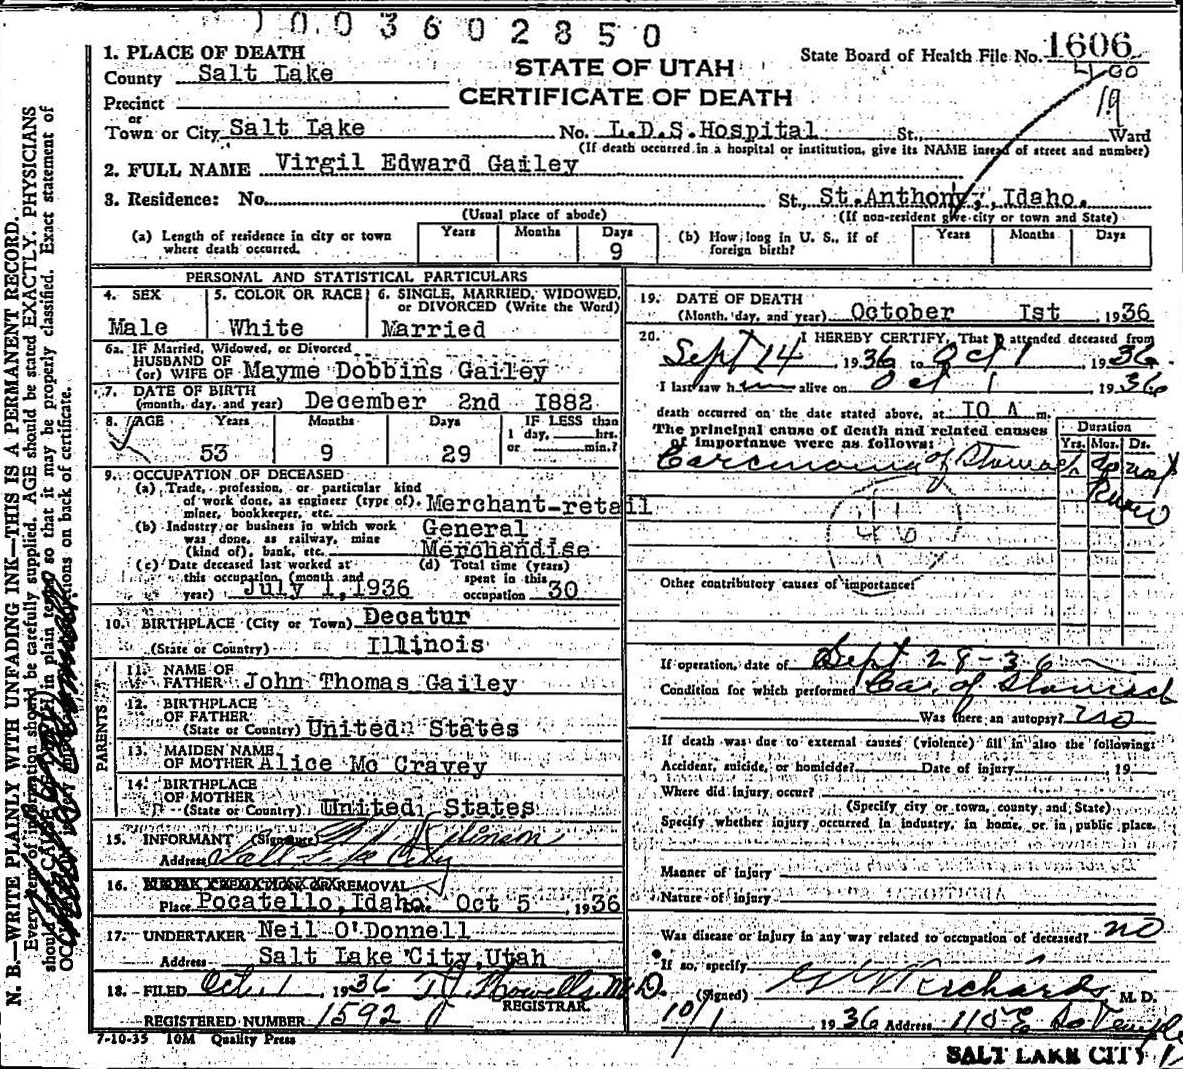 1003602850
1. PLACE OF DEATH
County Salt Lake
State Board of Health File No. 1606
STATE OF UTAH
CERTIFICATE OF DEATH
400
19
Precinct
or
Town or City Salt Lake No. L.D.S. Hospital St., Ward
(If death occurred in a hospital or institution, give its NAME instead of street and number)
2. FULL NAME Virgil Edward Gailey
3. Residence: No. St., St. Anthony, Idaho.
(Usual place of abode) (If non-resident give city or town and State)
(a) Length of residence in city or town where death occurred. Years Months Days 9
(b) How long in U. S., if of foreign birth? Years Months Days
PERSONAL AND STATISTICAL PARTICULARS
4. SEX Male
5. COLOR OR RACE White
6. SINGLE, MARRIED, WIDOWED, or DIVORCED (Write the Word) Married
6a. IF Married, Widowed, or Divorced
HUSBAND OF
(or) WIFE OF Mayme Dobbins Gailey
7. DATE OF BIRTH
(month, day, and year) December 2nd 1882
8. AGE Years Months Days IF LESS than
1 day, hrs.
or min.?
53 9 29
9. OCCUPATION OF DECEASED
(a) Trade, profession, or particular kind
of work done, as engineer (type of), Merchant-retail
miner, bookkeeper, etc.
(b) Industry or business in which work General
was done, as railway, mine
(kind of), bank, etc. Merchandise
(c) Date deceased last worked at
this occupation (month and
year) July 1, 1936
(d) Total time (years)
spent in this
occupation 30
10. BIRTHPLACE (City or Town) Decatur
(State or Country) Illinois
PARENTS
11. NAME OF
FATHER John Thomas Gailey
12. BIRTHPLACE
OF FATHER
(State or Country) United States
13. MAIDEN NAME
OF MOTHER Alice Mc Cravey
14. BIRTHPLACE
OF MOTHER
(State or Country) United States
15. INFORMANT (Signature)
Address Salt Lake City
16. BURIAL CREMATION OR REMOVAL
Place Pocatello, Idaho Date Oct 5, 1936
17. UNDERTAKER Neil O'Donnell
Address Salt Lake City, Utah
18. FILED Oct. 1, 1936 M. D.
REGISTRAR
REGISTERED NUMBER 1592
7-10-35 10M Quality Press
19. DATE OF DEATH
(Month, day, and year) October 1st, 1936
20. I HEREBY CERTIFY, That I attended deceased from
Sept 14, 1936 to Oct 1, 1936
I last saw him alive on Oct 1, 1936
death occurred on the date stated above, at 10 A m.
The principal cause of death and related causes
of importance were as follows:
Duration
Yrs. Mos. Ds.
Carcinoma of Stomach
46
Other contributory causes of importance:
If operation, date of Sept 28-36
Condition for which performed Car. of Stomach
Was there an autopsy? no
If death was due to external causes (violence) fill in also the following:
Accident, suicide, or homicide? Date of injury, 19
Where did injury occur?
(Specify city or town, county and State)
Specify whether injury occurred in industry, in home, or in public place.
Manner of injury
Nature of injury
Was disease or injury in any way related to occupation of deceased? no
If so, specify
(Signed) G. G. Richards M. D.
10/1, 1936 Address 115 E So Temple
SALT LAKE CITY
N. B.—WRITE PLAINLY WITH UNFADING INK—THIS IS A PERMANENT RECORD.
Every item of information should be carefully supplied. AGE should be stated EXACTLY. PHYSICIANS
should state CAUSE OF DEATH in plain terms so that it may be properly classified. Exact statement of
on back of certificate.